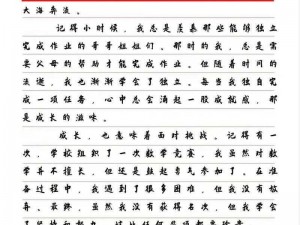 大海奔流。
记得小时候，我总是羡慕那些能够独立
完成作业的哥哥姐姐们。那时的我，总是需
要父母的帮助才能完成作业。但随着时间的
流逝，我也渐渐学会了独立。每当我独自完
成一项任务，心中总会涌起一股成就感，那
是成长的滋味。
成长，也意味着面对挑战。记得有一
次，学校组织了一次数学竞赛，我虽然对数
学并不擅长，但还是鼓起勇气参加了。在准
备过程中，我遇到了很多困难，但我没有放
弃。最终，我虽然没有获得名次，但我学会